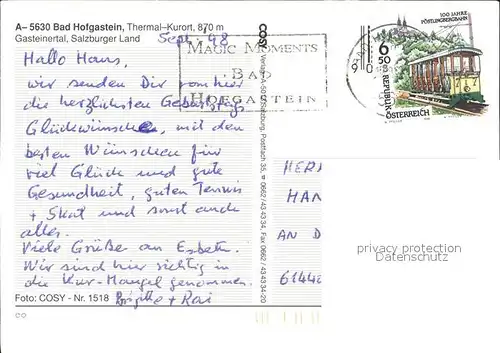 A– 5630 Bad Hofgastein, Thermal–Kurort, 870 m
Gasteinertal, Salzburger Land
Sept. 98
Hallo Hans,
wir senden Dir von hier
die herzlichsten Geburtstags
Glückwünsche, mit den
besten Wünschen für
viel Glück und gute
Gesundheit, guten Tennis
+ Skat und sonst auch
alles.
Viele Grüße an Esbeth.
Wir sind hier richtig in
die Kur-Mangel genommen.
Brigitte + Rai
Foto: COSY - Nr. 1518
MAGIC MOMENTS
BAD
HOFGASTEIN
COSY Verlag A-5010 Salzburg, Postfach 35, 0662/43 43 34, Fax 0662/43 43 34-20
100 JAHRE
PÖSTLINGBERGBAHN
6 50
REPUBLIK
ÖSTERREICH
HER
HAN
AN D
6144
privacy protection
Datenschutz